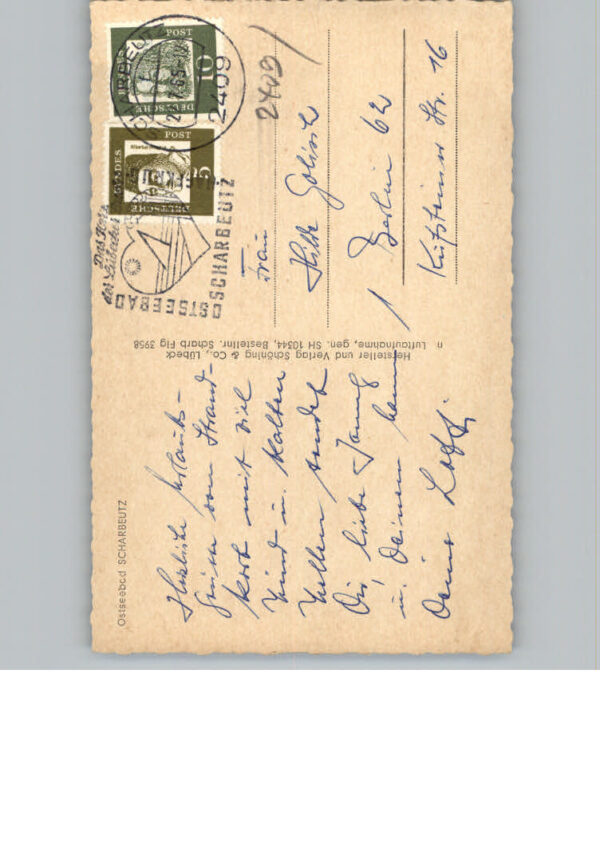 Ostseebad SCHARBEUTZ
Herzliche Urlaubs-
grüsse vom Strand-
korb mit viel
Wind u. kalten
Wellen sendet
Dir, liebe
u. Deinem
Deine Lotti
Hersteller und Verlag Schöning & Co., Lübeck
Luftaufnahme, gen. SH 10344, Bestellnr. Scharb Flg 3958
DEUTSCHE
POST
10
DEUTSCHE
BUNDES
POST
5
2409
2409
Das Herz
der Lübecker
OSTSEEBAD
SCHARBEUTZ
Frau
Hilde
1 Berlin 62
Kufsteiner Str. 16